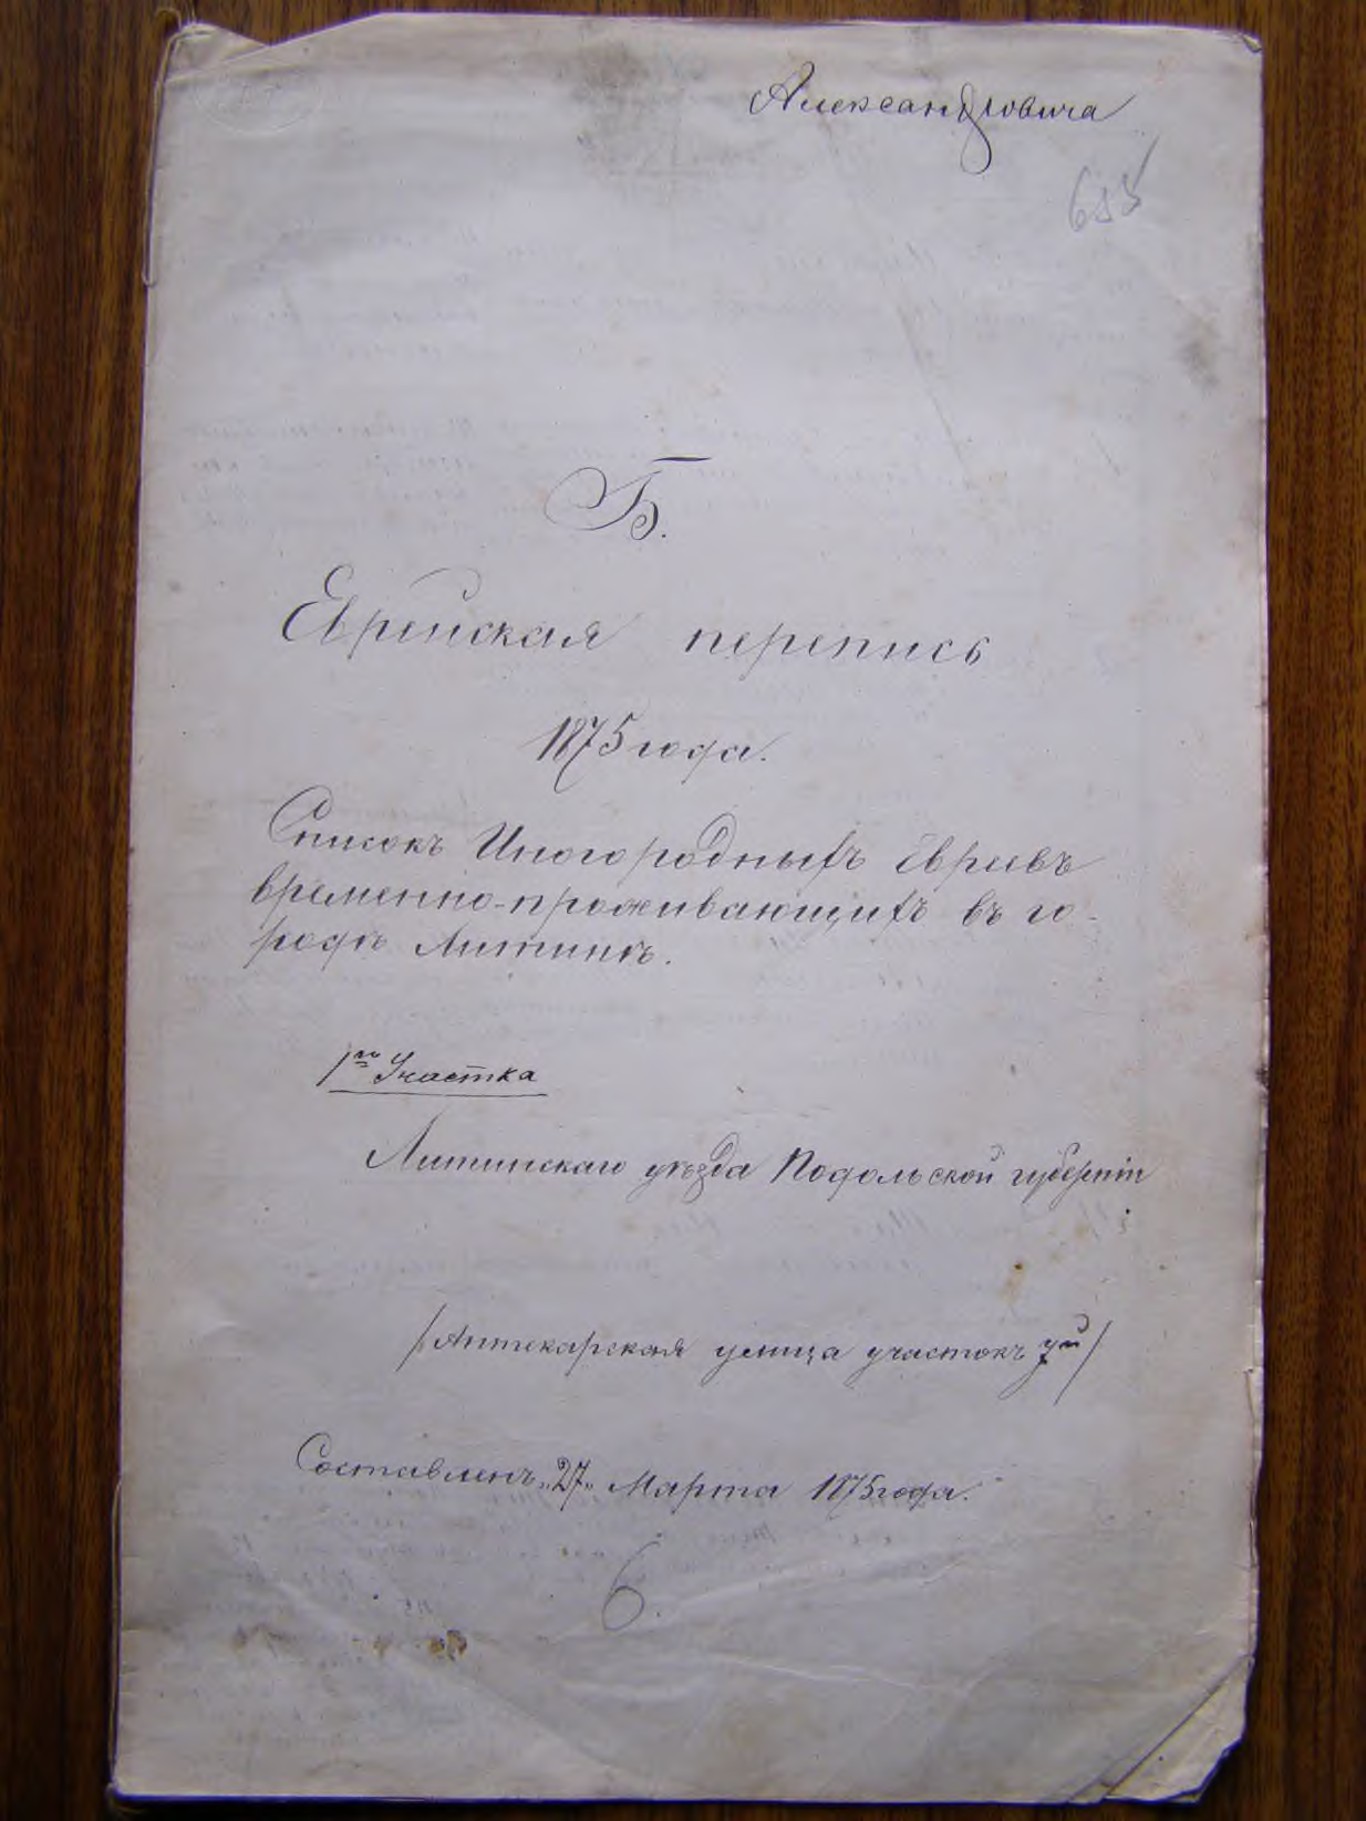 Александровича
655
Б.
Еврейская перепись
1875 года.
Списокъ Иногородныхъ Евреевъ
временно-проживающихъ въ го-
родѣ Литинѣ.
1го Участка
Литинскаго уѣзда Подольской губерніи
/Аптекарская улица участокъ й/
Составленъ „27„ Марта 1875 года.
6.